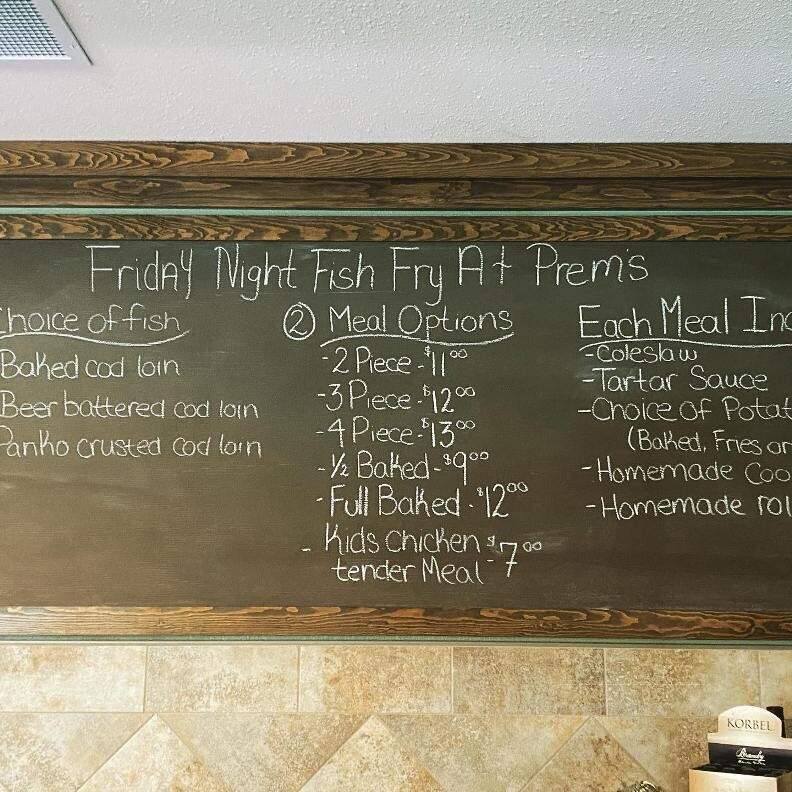 Friday Night Fish Fry At Prem's
Choice of fish
Baked cod loin
Beer battered cod loin
Panko crusted cod loin
② Meal Options
-2 Piece - $11⁰⁰
-3 Piece - $12⁰⁰
-4 Piece - $13⁰⁰
-½ Baked - $9⁰⁰
-Full Baked - $12⁰⁰
- Kids Chicken $7⁰⁰
tender Meal
Each Meal Inc
-Coleslaw
-Tartar Sauce
-Choice of Potat
(Baked, Fries or
-Homemade Coo
-Homemade rol
KORBEL
Brandy